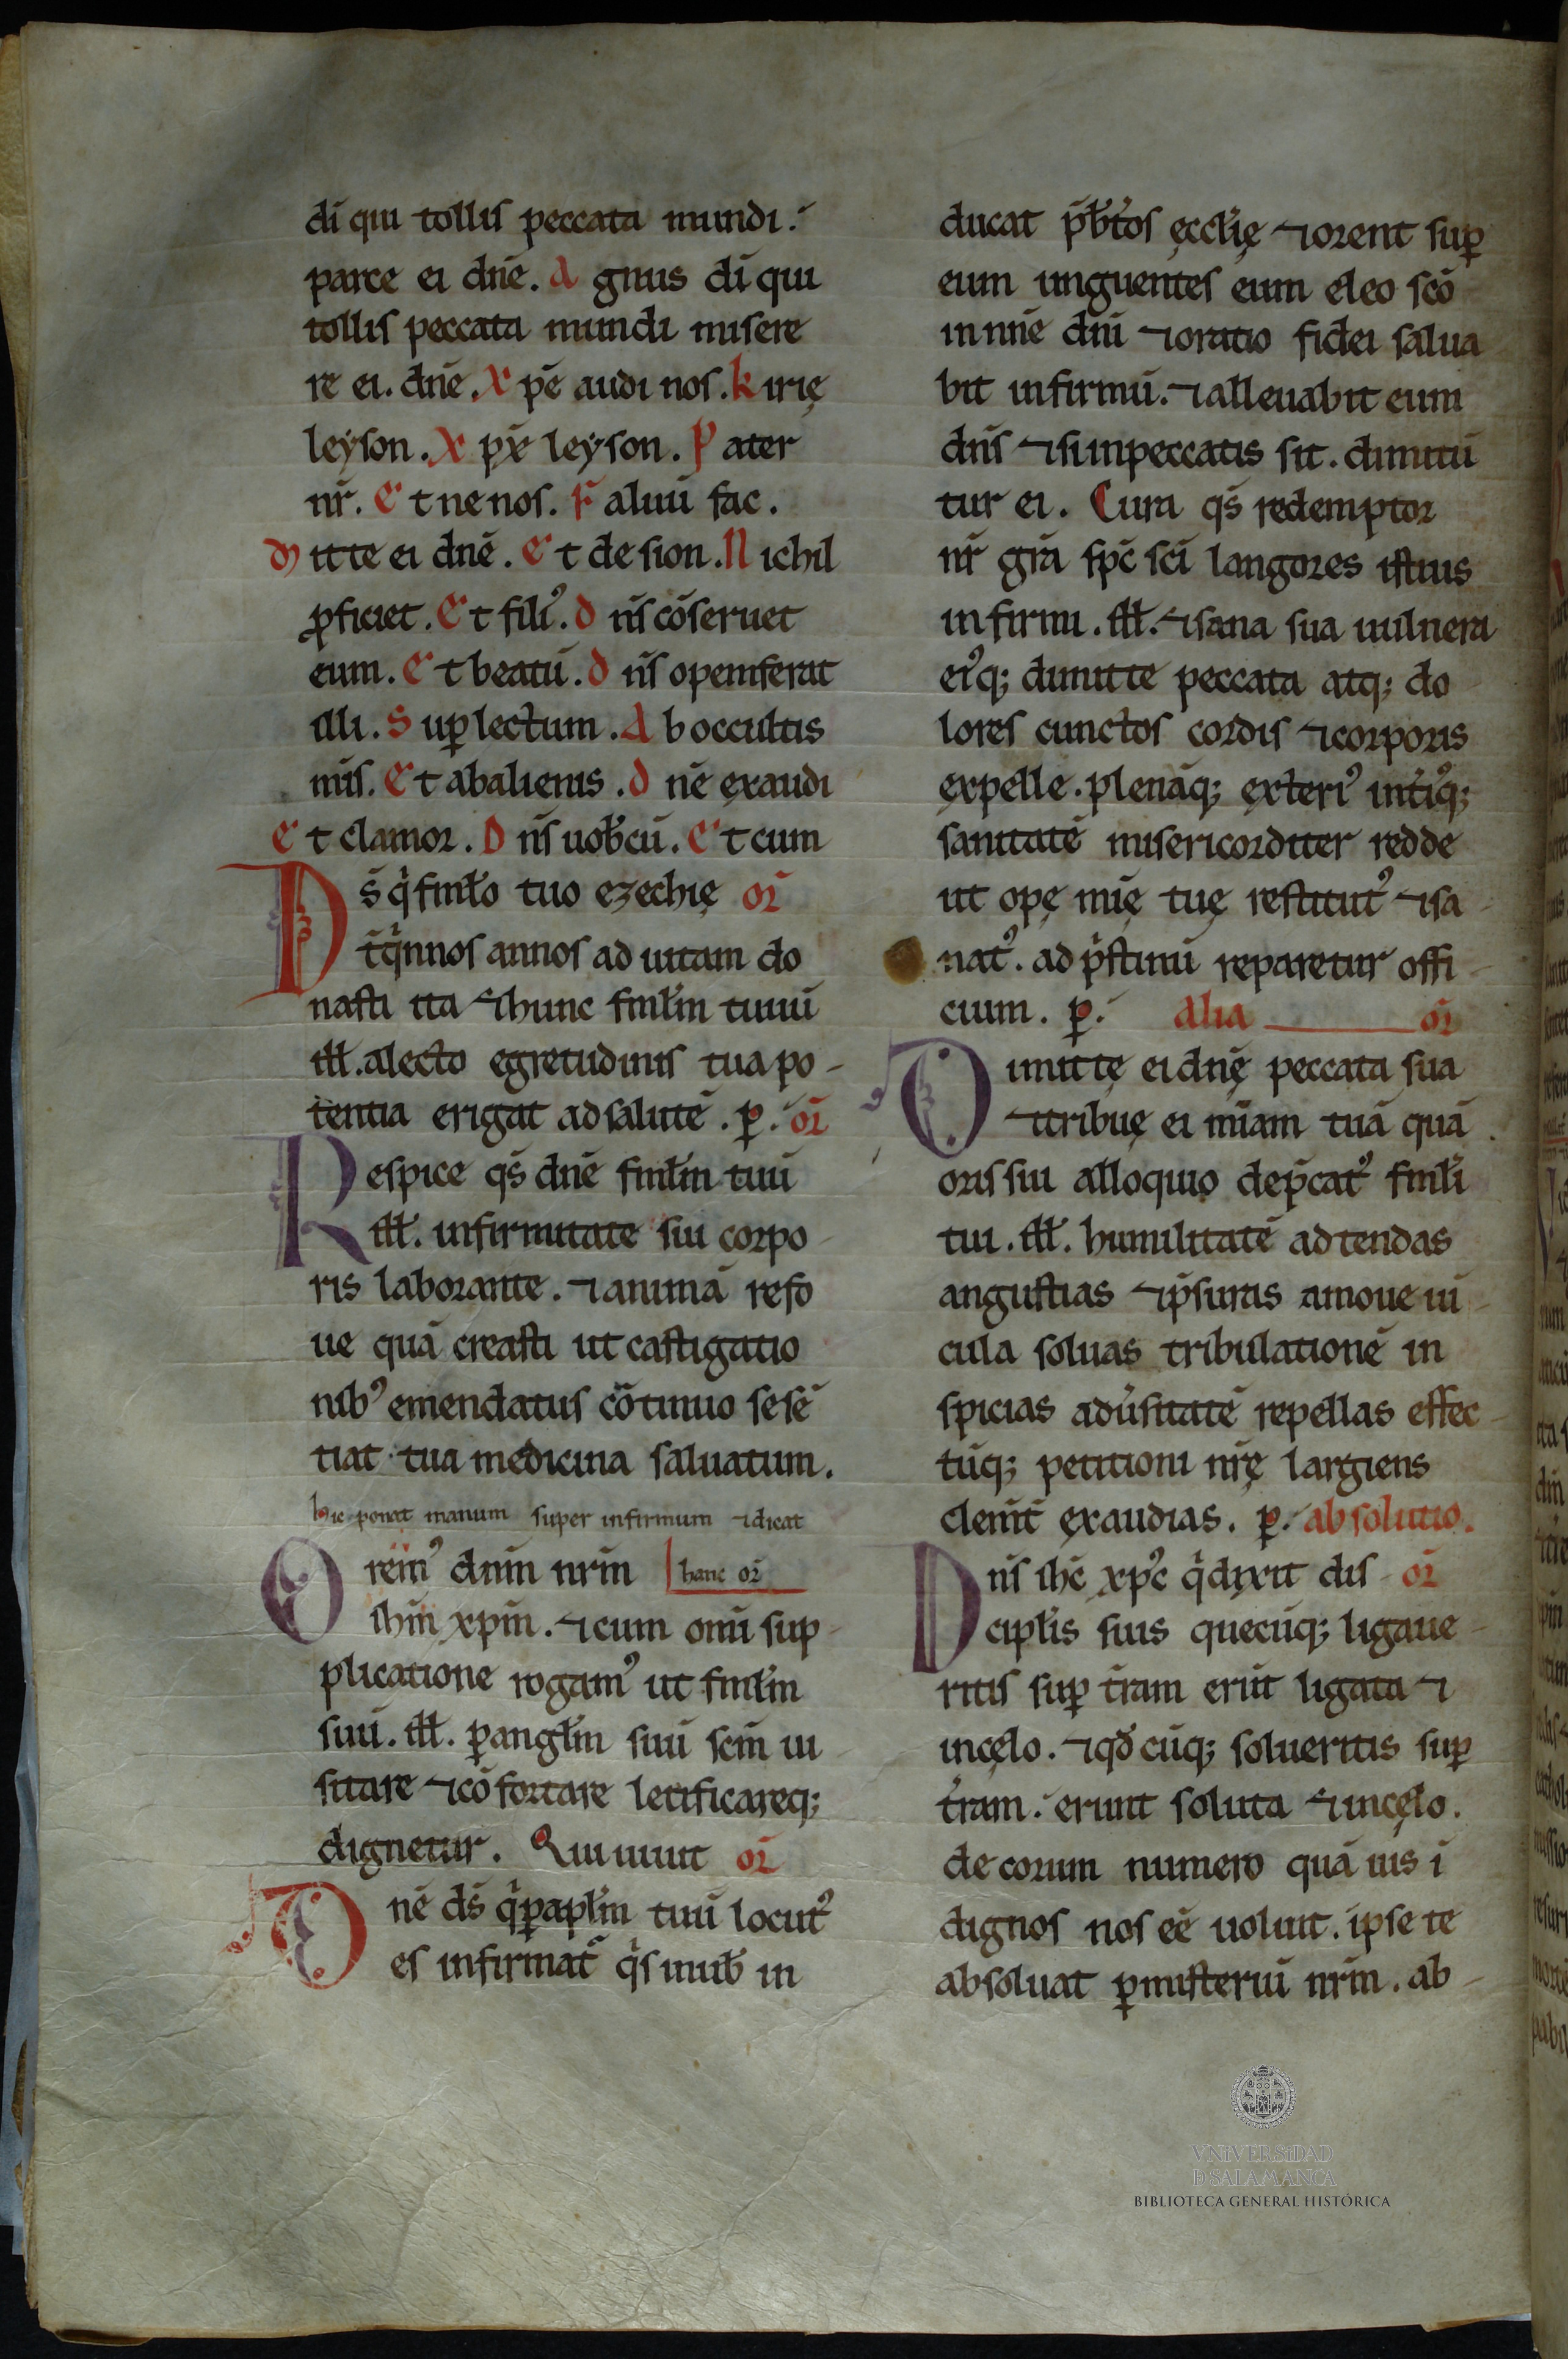 di̅ qui tollis peccata mundi.
parce ei dn̅e. A gnus di̅ qui
tollis peccata mundi misere
re ei. dn̅e. X pe̅ audi nos. k irię
leẏson. X pe̅ leẏson. P ater
nr̅. E t ne nos. S aluu̅ fac.
M itte ei dn̅e. E t de sion. N ichil
ꝓficiet. E t filiꝰ. D n̅s co̅seruet
eum. E t beatu̅. D n̅s opem ferat
illi. S uꝑ lectum. A b occultis
mis. E t ab alienis. D n̅e exaudi
E t clamor. D n̅s uob̅cu̅. E t cum
D s̅ qͥ fml̅o tuo ezechię or̅
t qͥnnos annos ad uitam do
nasti ita ⁊ hunc fml̅m tuuu̅
ill̅. a lecto egretudinis tua po-
tentia erigat ad salute̅. p̱. or̅
R espice qs̅ dn̅e fml̅m tuu̅
ill̅. infirmitate sui corpo-
ris laborante. ⁊ anima̅ refo
ue qua̅ creasti ut castigatio
nibꝰ emendatus co̅tinuo se se̅
tiat tua medicina saluatum.
hic ponat manum super infirmum ⁊ dicat
O remꝰ dnm̅ nrm̅ hanc or̅
ihm̅ xpm̅. ⁊ cum omi̅ sup-
plicatione rogamꝰ ut fml̅m
suu̅. ill̅. ꝑ angl̅m suu̅ scm̅ ui
sitare ⁊ co̅fortare letificareq;
dignetur. Qui uiuit or̅
D ne̅ ds̅ qͥ ꝑ apl̅m tuu̅ locutꝰ
es infirmat̅ qͥs in uob̅ in
ducat p̅bt̅os ęccl̅ię ⁊ orent suꝑ
eum unguentes eum eleo sco̅
in nn̅e dni̅ ⁊ oratio fidei salua
bit infirmu̅. ⁊ alleuabit eum
dn̅s ⁊ si in peccatis sit. dimittu̅
tur ei. Cura qs̅ redemptor
nr̅ gra̅ spc̅ sci̅ langores istius
infirmi. ill̅. ⁊ sana sua uulnera
eiꝰq; dimitte peccata atq; do
lores cunctos cordis ⁊ corporis
expelle. plena̅q; exteriꝰ int̅iꝰq;
sanitate̅ misericorditer redde
ut opę mi̅ę tuę restitutꝰ ⁊ sa-
natꝰ. ad pͥstinu̅ reparetur offi-
cium. p̱. Alia or̅
D imittę ei dn̅ę peccata sua
⁊ tribuę ei mi̅am tua̅ qua̅
oris sui alloquio dep̅catꝰ fml̅i
tui. ill̅. humilitate̅ adtendas
angustias ⁊ p̅suris amoue ui-
cula soluas tribulatione̅ in
spicias adu̅sitate̅ repellas effec-
tu̅q; petitioni nr̅ę largiens
clem̅t exaudias. p̱. absolutio.
D n̅s ihc̅ xpc̅ qͥ dixit dis- or̅
cipl̅is suis quecu̅q; ligaue-
ritis suꝑ tr̅am eru̅t ligata ⁊
in cęlo. ⁊ qd̅ cu̅q; solueritis suꝑ
tr̅am. erunt soluta ⁊ in cęlo.
de corum numero qua̅uis i̅
dignos nos ee̅ uoluit. ipse te
absoluat ꝑ misteriu̅ nrm̅. ab-
VNIVERSIDAD
D SALAMANCA
BIBLIOTECA GENERAL HISTÓRICA